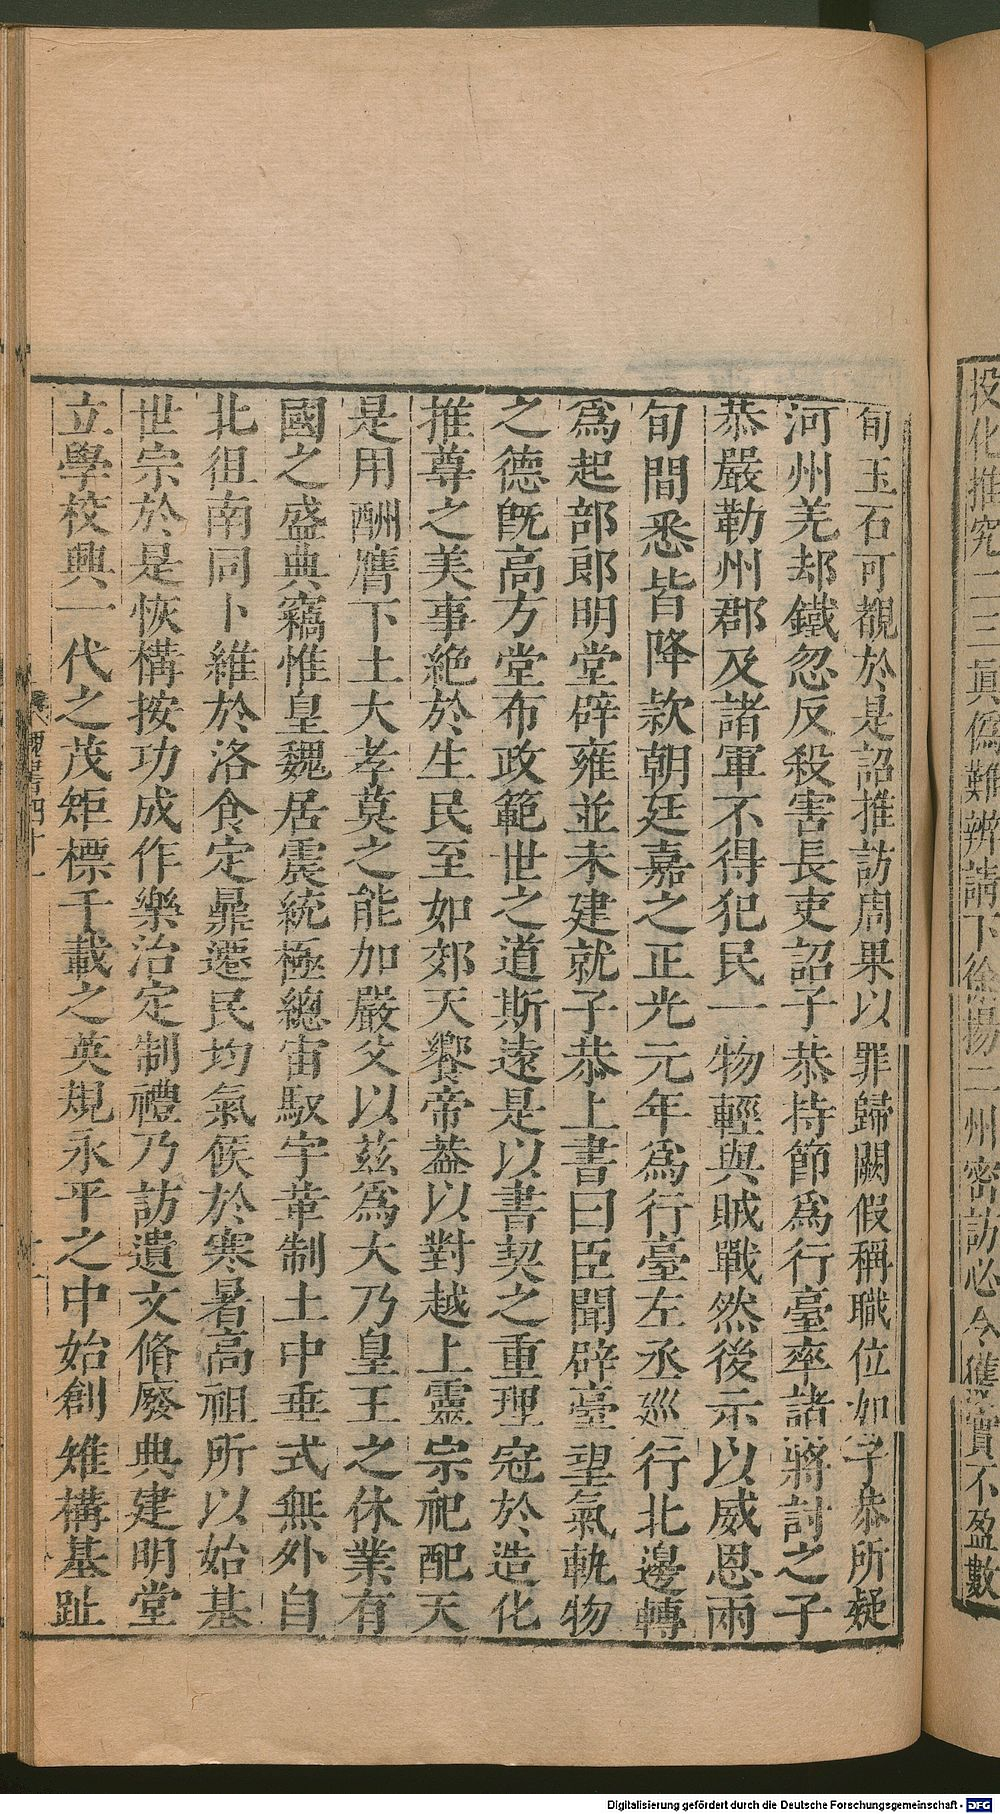 投化推究一二三眞僞難辨請下徐揚二州密訪必令獲實不盈數
旬玉石可覩於是詔推訪周果以罪歸闕假稱職位如子恭所疑
河州羌却鐵忽反殺害長吏詔子恭持節爲行臺率諸將討之子
恭嚴勒州郡及諸軍不得犯民一物輕與賊戰然後示以威恩兩
旬間悉皆降款朝廷嘉之正光元年爲行臺左丞巡行北邊轉
爲起部郎明堂辟雍並未建就子恭上書曰臣聞辟臺望氣軌物
之德旣高方堂布政範世之道斯遠是以書契之重理冠於造化
推尊之美事絶於生民至如郊天饗帝葢以對越上靈宗祀配天
是用酬膺下土大孝莫之能加嚴父以茲爲大乃皇王之休業有
國之盛典竊惟皇魏居震統極總宙馭宇革制土中垂式無外自
北徂南同卜維於洛食定鼎遷民均氣候於寒暑高祖所以始基
世宗於是恢構按功成作樂治定制禮乃訪遺文脩廢典建明堂
立學校興一代之茂矩標千載之英規永平之中始創雉構基趾
Digitalisierung gefördert durch die Deutsche Forschungsgemeinschaft - DFG